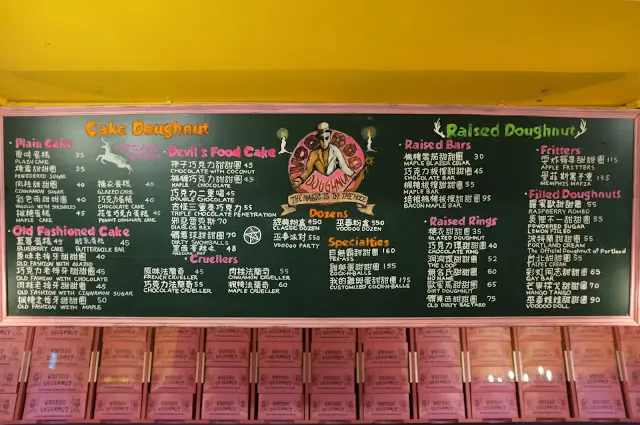 Cake Doughnut
Plain Cake
原味蛋糕 35
PLAIN CAKE
糖霜甜甜圈 35
POWDERED SUGAR
肉桂甜甜圈 40
CINNAMON SUGAR
彩色雨甜甜圈 40
PLAIN WITH SPRINKLES
楓糖蛋糕 45
MAPLE CAKE
糖衣蛋糕 40
GLAZED CAKE
巧克力蛋糕 40
CHOCOLATE CAKE
花生巧克力蛋糕 45
Old Fashioned Cake
藍莓蛋糕 45
BLUEBERRY CAKE
BUTTERMILK BAR
原味老梅牙甜甜圈 40
OLD FASHION WITH GLAZED
巧克力老梅牙甜甜圈 50
OLD FASHION WITH CHOCOLATE
肉桂老梅牙甜甜圈 45
OLD FASHION WITH CINNAMON SUGAR
楓糖老梅牙甜甜圈 50
OLD FASHION WITH MAPLE
Devil's Food Cake
椰子巧克力甜甜圈 45
CHOCOLATE WITH COCONUT
楓糖巧克力甜甜圈 45
MAPLE CHOCOLATE
巧克力二重唱 45
DOUBLE CHOCOLATE
古怪三重奏巧克力 55
TRIPLE CHOCOLATE PENETRATION
邪惡雷斯 70
DIABLOS REX
髒雪球甜甜圈 70
DIRTY SNOWBALLS
48
Cruellers
原味法蘭奇 45
FRENCH CRUELLER
巧克力法蘭奇 55
CHOCOLATE CRUELLER
肉桂法蘭奇 55
CINNAMON CRUELLER
楓糖法蘭奇 60
MAPLE CRUELLER
VOODOO
DOUGHNUT
THE MAGIC IS IN THE HOLE
Dozens
經典粉盒 450
CLASSIC DOZEN
巫毒粉盒 550
VOODOO DOZEN
巫毒派對 550
VOODOO PARTY
Specialties
巨無霸甜甜圈 160
TEX-ASS
雞與蛋甜甜圈 155
COCK-N-BALLS
我的雞與蛋甜甜圈 175
CUSTOMIZED COCK-N-BALLS
Raised Doughnut
Raised Bars
楓糖雪茄甜甜圈 30
MAPLE BLAZER CIGAR
巧克力板擦甜甜圈 45
CHOCOLATE BAR
楓糖板擦甜甜圈 55
MAPLE BAR
培根楓糖板擦甜甜圈 95
BACON MAPLE BAR
Raised Rings
糖衣甜甜圈 35
GLAZED DOUGHNUT
巧克力環甜甜圈 40
CHOCOLATE RING
洞洞甜甜圈 52
THE LOOP
無名氏甜甜圈 60
NO NAME
歐霉馬甜甜圈 65
DIRT DOUGHNUT
髒東西甜甜圈 75
OLD DIRTY BASTARD
Fritters
零炸蘋果甜甜圈 115
APPLE FRITTERS
曼菲斯黑手黨 135
MEMPHIS MAFIA
Filled Doughnuts
羅蜜歐甜甜圈 55
RASPBERRY ROMEO
POWDERED SUGAR
LEMON FILLED
波特蘭甜甜圈 55
PORTLAND CREAM
The Official Doughnut of Portland
台北甜甜圈 55
TAIPEI CREAM
彩虹同志甜甜圈 65
GAY BAR
芒果探戈甜甜圈 70
MANGO TANGO
巫毒娃娃甜甜圈 90
VOODOO DOLL
VOODOO
DOUGHNUT